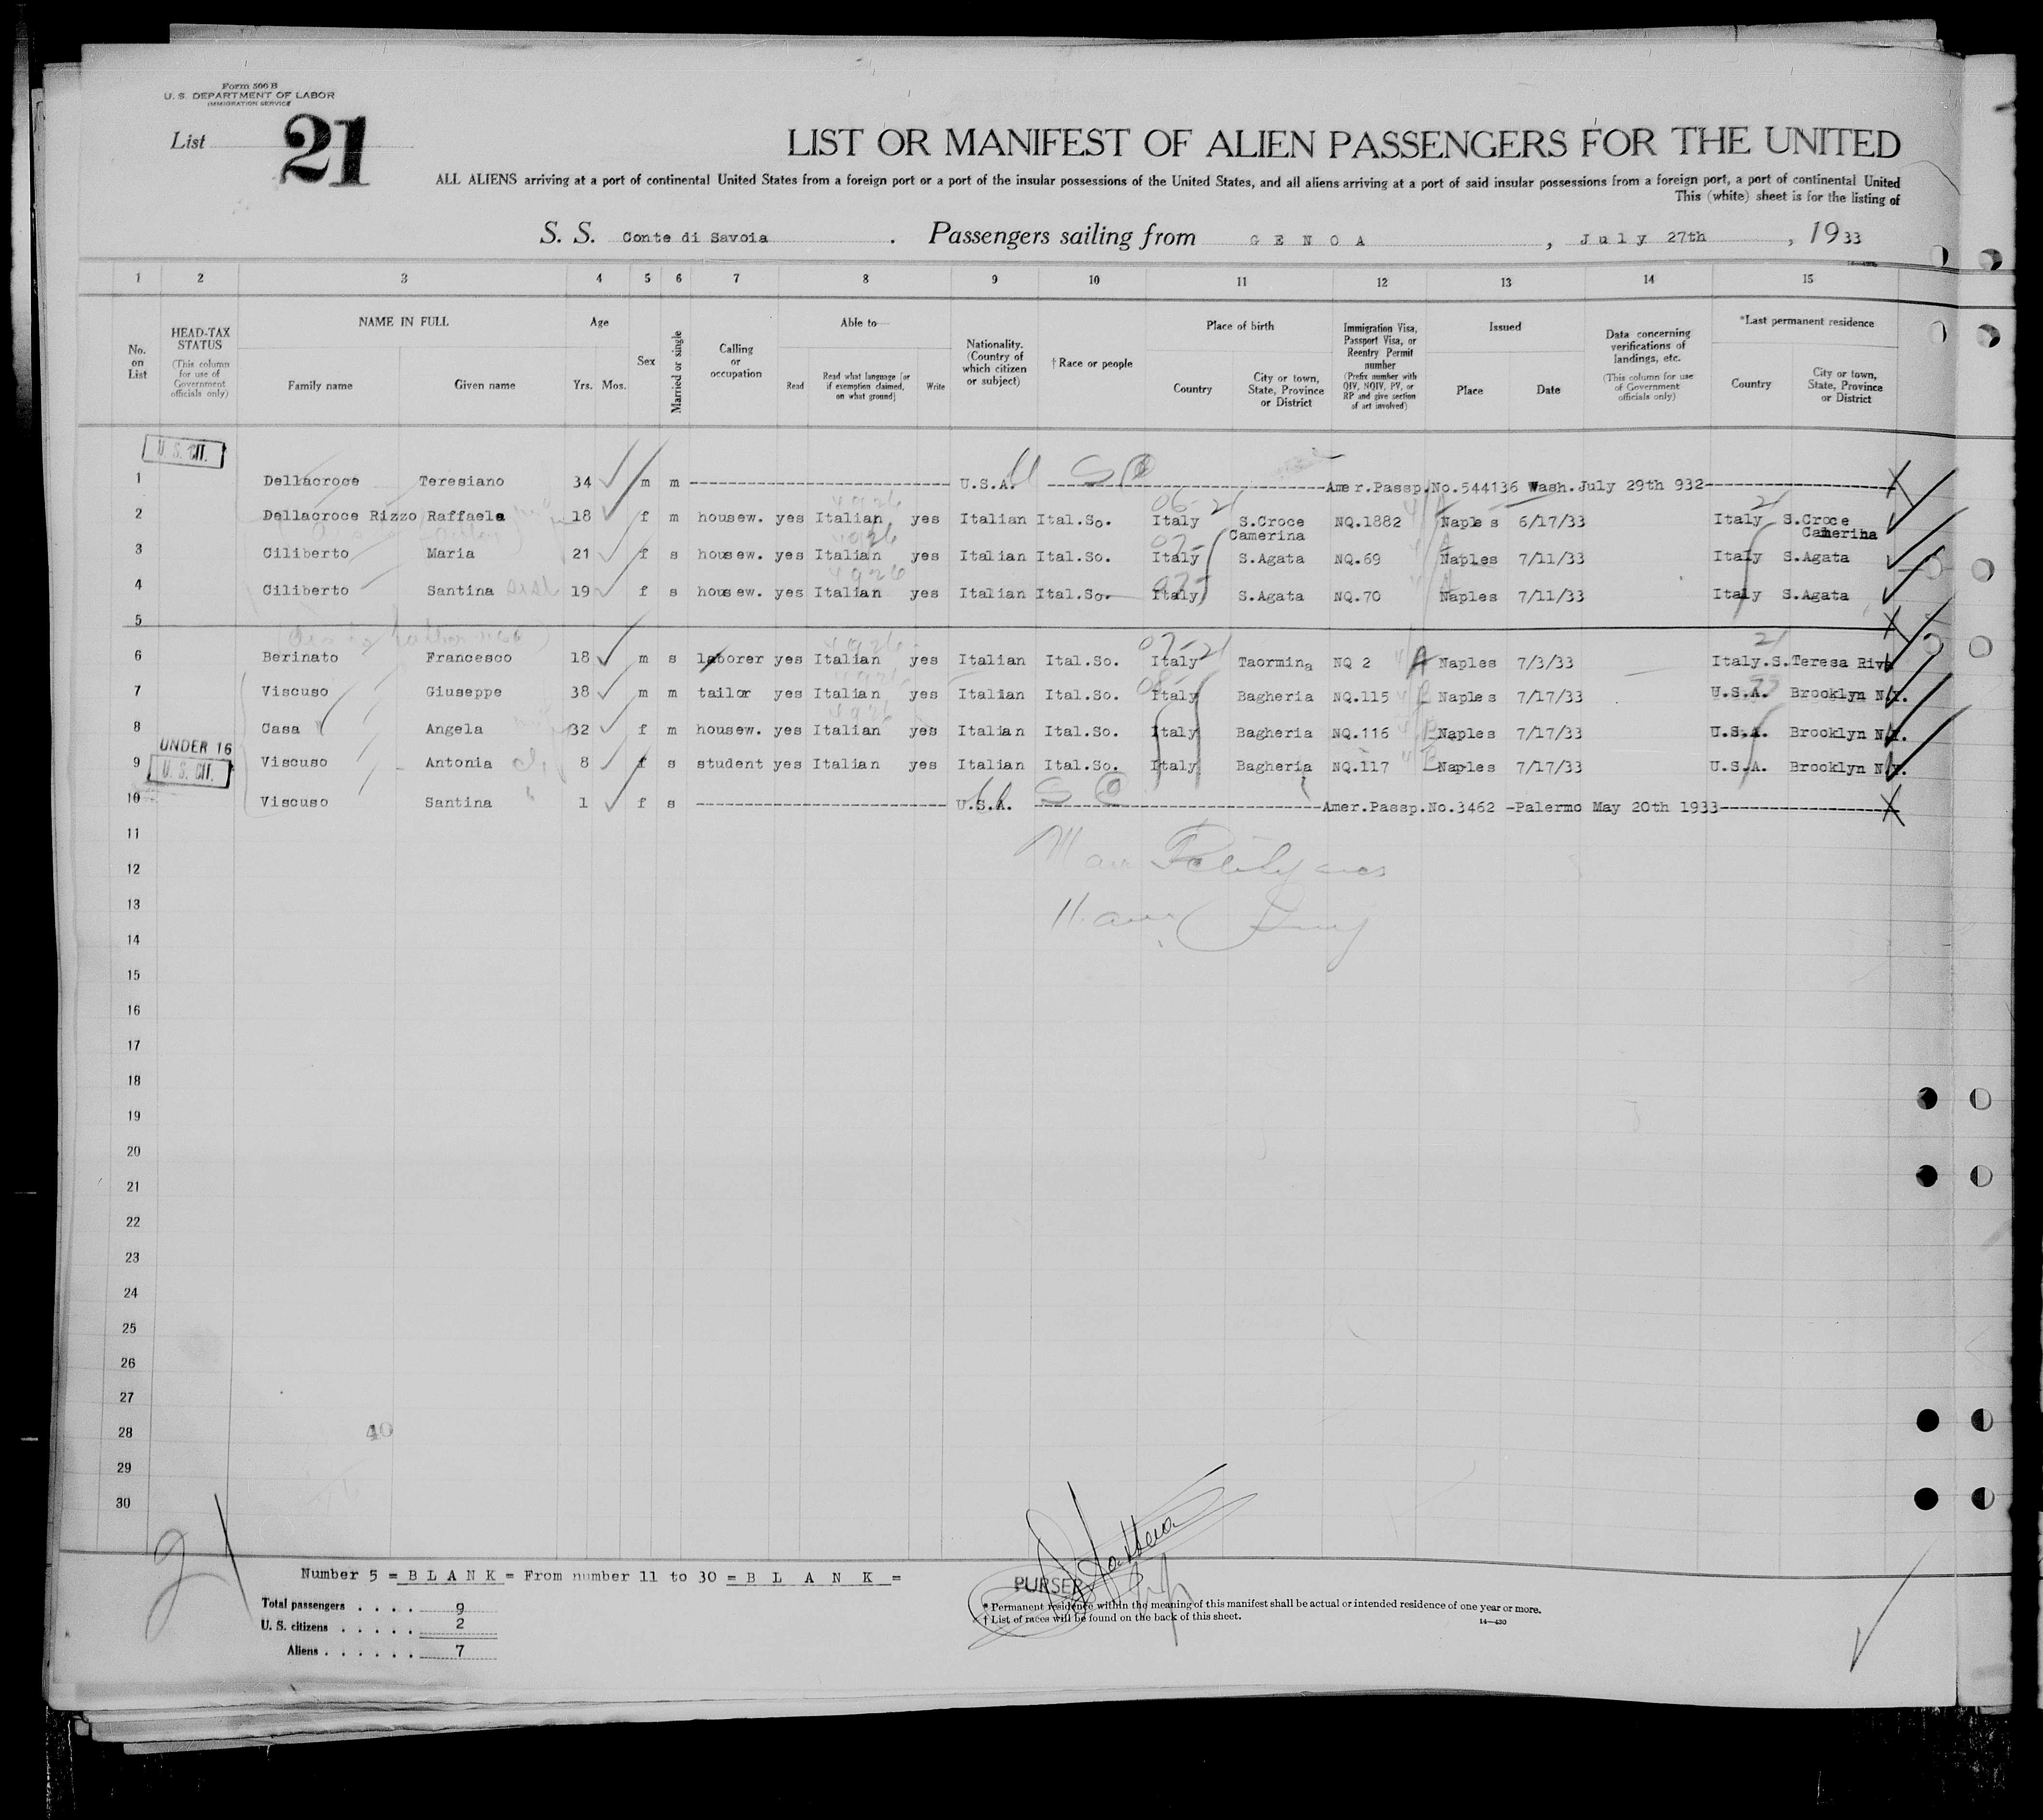 Form 500 B
U. S. DEPARTMENT OF LABOR
IMMIGRATION SERVICE
List 21
LIST OR MANIFEST OF ALIEN PASSENGERS FOR THE UNITED
ALL ALIENS arriving at a port of continental United States from a foreign port or a port of the insular possessions of the United States, and all aliens arriving at a port of said insular possessions from a foreign port, a port of continental United
This (white) sheet is for the listing of
S. S. Conte di Savoia . Passengers sailing from G E N O A , July 27th , 1933
1 2 3 4 5 6 7 8 9 10 11 12 13 14 15
No. on List
HEAD-TAX STATUS (This column for use of Government officials only)
NAME IN FULL
Family name Given name
Age
Yrs. Mos.
Sex
Married or single
Calling or occupation
Able to—
Read Read what language [or if exemption claimed, on what ground] Write
Nationality. (Country of which citizen or subject)
†Race or people
Place of birth
Country City or town, State, Province or District
Immigration Visa, Passport Visa, or Reentry Permit number (Prefix number with QIV, NQIV, PV, or RP and give section of act involved)
Issued
Place Date
Data concerning verifications of landings, etc. (This column for use of Government officials only)
*Last permanent residence
Country City or town, State, Province or District
U. S. CIT.
1 Dellacroce Teresiano 34 m m U.S.A. Amer.Passp.No.544136 Wash.July 29th 932
2 Dellacroce Rizzo Raffaela 18 f m housew. yes Italian yes Italian Ital.So. Italy S.Croce Camerina NQ.1882 Naples 6/17/33 Italy S.Croce Camerina
3 Ciliberto Maria 21 f s housew. yes Italian yes Italian Ital.So. Italy S.Agata NQ.69 Naples 7/11/33 Italy S.Agata
4 Ciliberto Santina 19 f s housew. yes Italian yes Italian Ital.So. Italy S.Agata NQ.70 Naples 7/11/33 Italy S.Agata
5
6 Berinato Francesco 18 m s laborer yes Italian yes Italian Ital.So. Italy Taormina NQ 2 A Naples 7/3/33 Italy.S.Teresa Riva
7 Viscuso Giuseppe 38 m m tailor yes Italian yes Italian Ital.So. Italy Bagheria NQ.115 Naples 7/17/33 U.S.A. Brooklyn N.Y.
8 Casa Angela 32 f m housew. yes Italian yes Italian Ital.So. Italy Bagheria NQ.116 Naples 7/17/33 U.S.A. Brooklyn N.Y.
UNDER 16
9 Viscuso Antonia 8 f s student yes Italian yes Italian Ital.So. Italy Bagheria NQ.117 Naples 7/17/33 U.S.A. Brooklyn N.Y.
U. S. CIT.
10 Viscuso Santina 1 f s U.S.A. Amer.Passp.No.3462 -Palermo May 20th 1933
11
12
13
14
15
16
17
18
19
20
21
22
23
24
25
26
27
28 40
29
30
21
Number 5 = B L A N K = From number 11 to 30 = B L A N K =
Total passengers . . . . 9
U. S. citizens . . . . . 2
Aliens . . . . . . 7
PURSER
* Permanent residence within the meaning of this manifest shall be actual or intended residence of one year or more.
† List of races will be found on the back of this sheet.
14—430